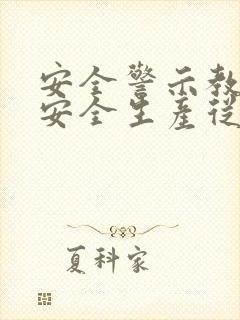 安全警示教
安全生産從
夏科家